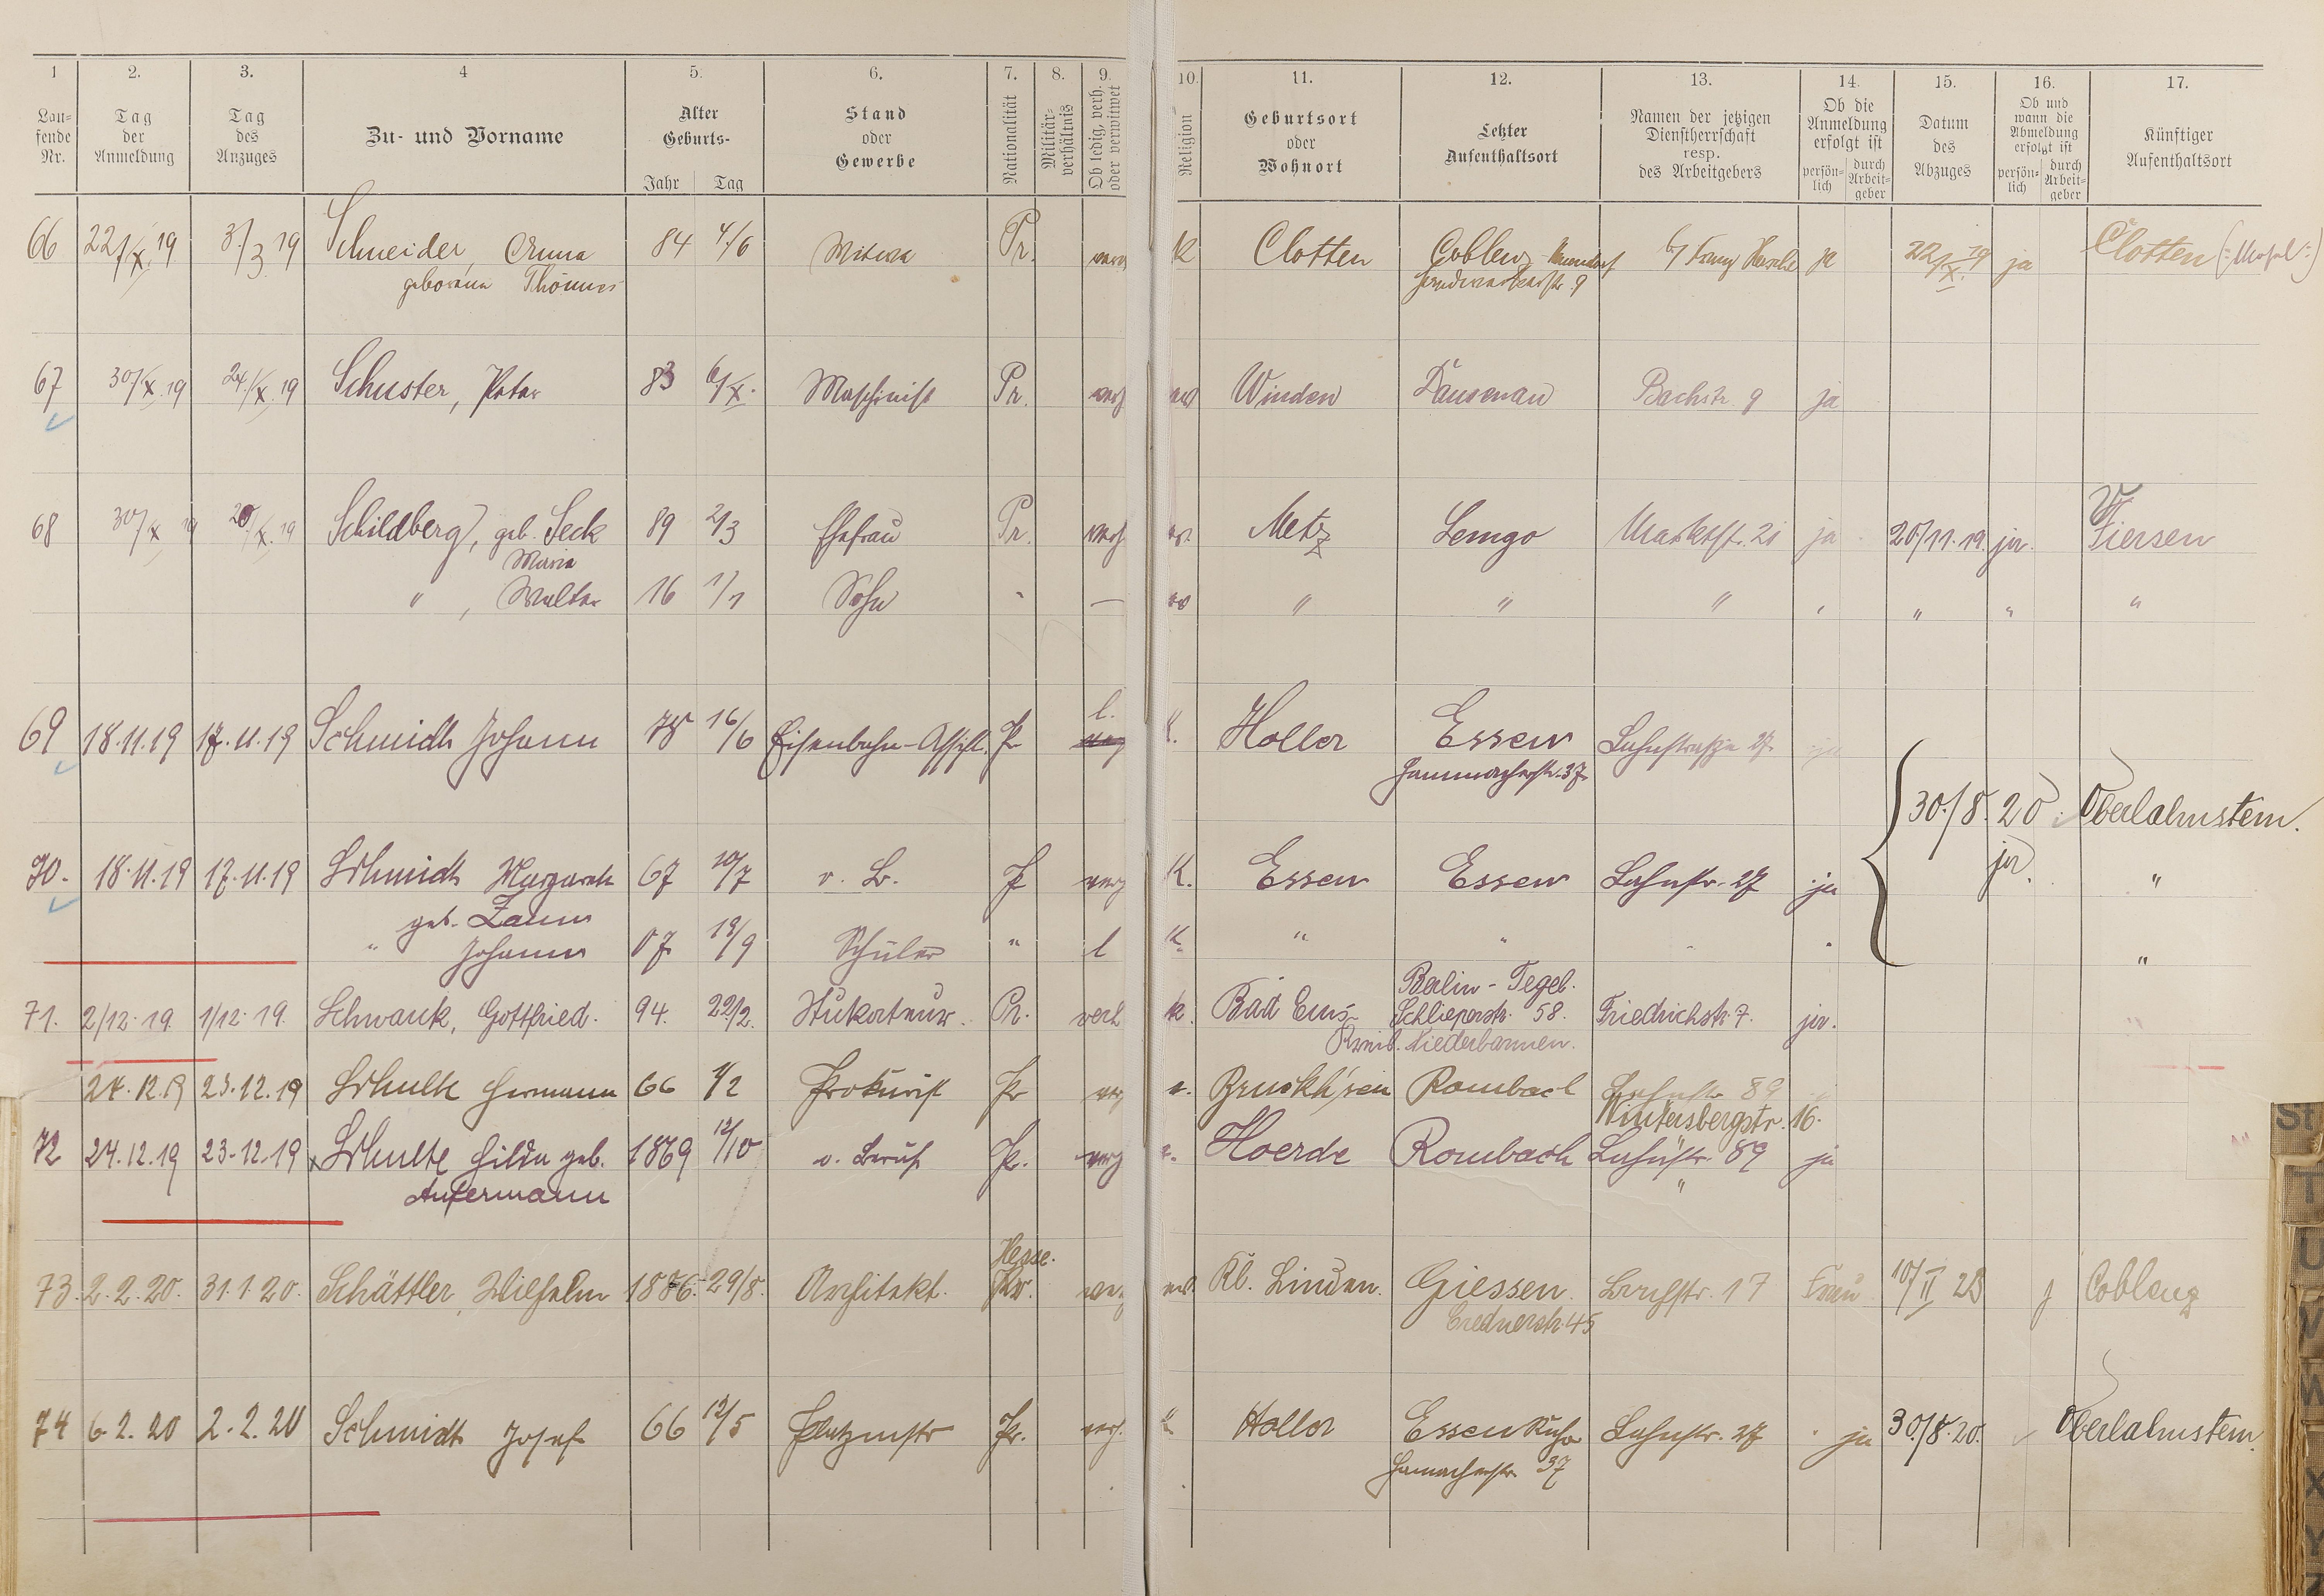 1 2. 3. 4 5. 6. 7. 8. 9. 10. 11. 12. 13. 14. 15. 16. 17.
Lau-
fende
Nr.
Tag
der
Anmeldung
Tag
des
Anzuges
Zu- und Vorname
Alter
Geburts-
Jahr Tag
Stand
oder
Gewerbe
Nationalität
Militär-
verhältnis
Ob ledig, verh.
oder verwitwet
Religion
Geburtsort
oder
Wohnort
Letzter
Aufenthaltsort
Namen der jetzigen
Dienstherrschaft
resp.
des Arbeitgebers
Ob die
Anmeldung
erfolgt ist
persön-
lich
durch
Arbeit-
geber
Datum
des
Abzuges
Ob und
wann die
Abmeldung
erfolgt ist
persön-
lich
durch
Arbeit-
geber
Künftiger
Aufenthaltsort
66 22/X.19 3/3 19 Schneider, Anna 84 4/6 Witwe Pr. K Clotten Coblenz ja 22/X.19 ja Clotten (:Mosel:)
geborene Thönnes
67 30/X.19 24./X.19 Schuster, Peter 83 6/X. Maschinist Pr. verh ev Winden Dausenau Bachstr. 9 ja
68 30/X 19 20/X.19 Schildberg, geb. Seck 89 2/3 Ehefrau Pr. verh ev. Metz Lemgo Marktstr. 21 ja 20/11.19. ja. Viersen
Maria
" , Walter 16 1/1 Sohn " — ev " " " " " " "
69 18.11.19 17.11.19 Schmidt Johann 78 16/6 Eisenbahn-Assist. Pr l. K. Holler Essen Lahnstraße 27. ja
Hammacherstr. 37
30./8. 20. Oberlahnstein.
ja.
70. 18.11.19 17.11.19 Schmidt Margarete 67 10/7 o. B. P verh K. Essen Essen Lahnstr. 27 ja "
geb. Zaun
" Johann 07 19/9 Schüler " l K. " " " " "
71. 2/12.19. 1/12.19. Schwank, Gottfried. 94. 22/2. Stukateur. Pr. verh k. Bad Ems Berlin-Tegel. Friedrichstr. 7. ja.
Schlieperstr. 58.
Kreis. Niederbarnim.
24.12.19 23.12.19 Schulte Hermann 66 1/2 Prokurist Pr verh e. Rombach Lahnstr 89
Wintersbergstr. 16.
72 24.12.19 23.12.19 Schulte Hilda geb. 1869 12/10 o. Beruf Pr. verh e. Hoerde Rombach Lahnstr. 89 ja
"
73. 2.2.20. 31.1.20. Schättler, Wilhelm 1886. 29/8. Architekt. Hesse. ev. Kl. Linden. Giessen. 17 Frau 10/II 23 j Coblenz
Crednerstr. 45
74 6.2.20 2.2.20 Schmidt Josef 66 12/5 Platzmstr Pr. verh. K Holler Essen Ruhr Lahnstr. 27 " ja 30./8.20. Oberlahnstein.
Hamacherstr. 37